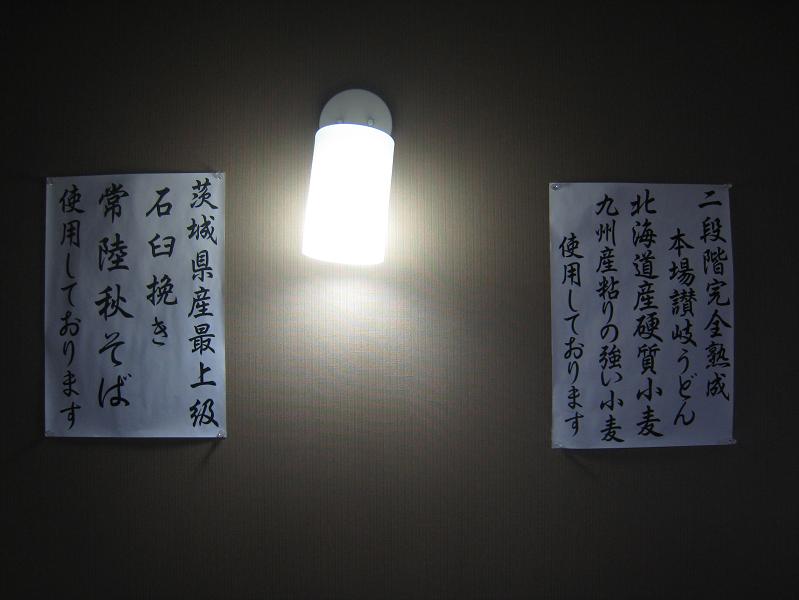 茨城県産最上級
石臼挽き
常陸秋そば
使用しております
二段階完全熟成
本場讃岐うどん
北海道産硬質小麦
九州産粘りの強い小麦
使用しております